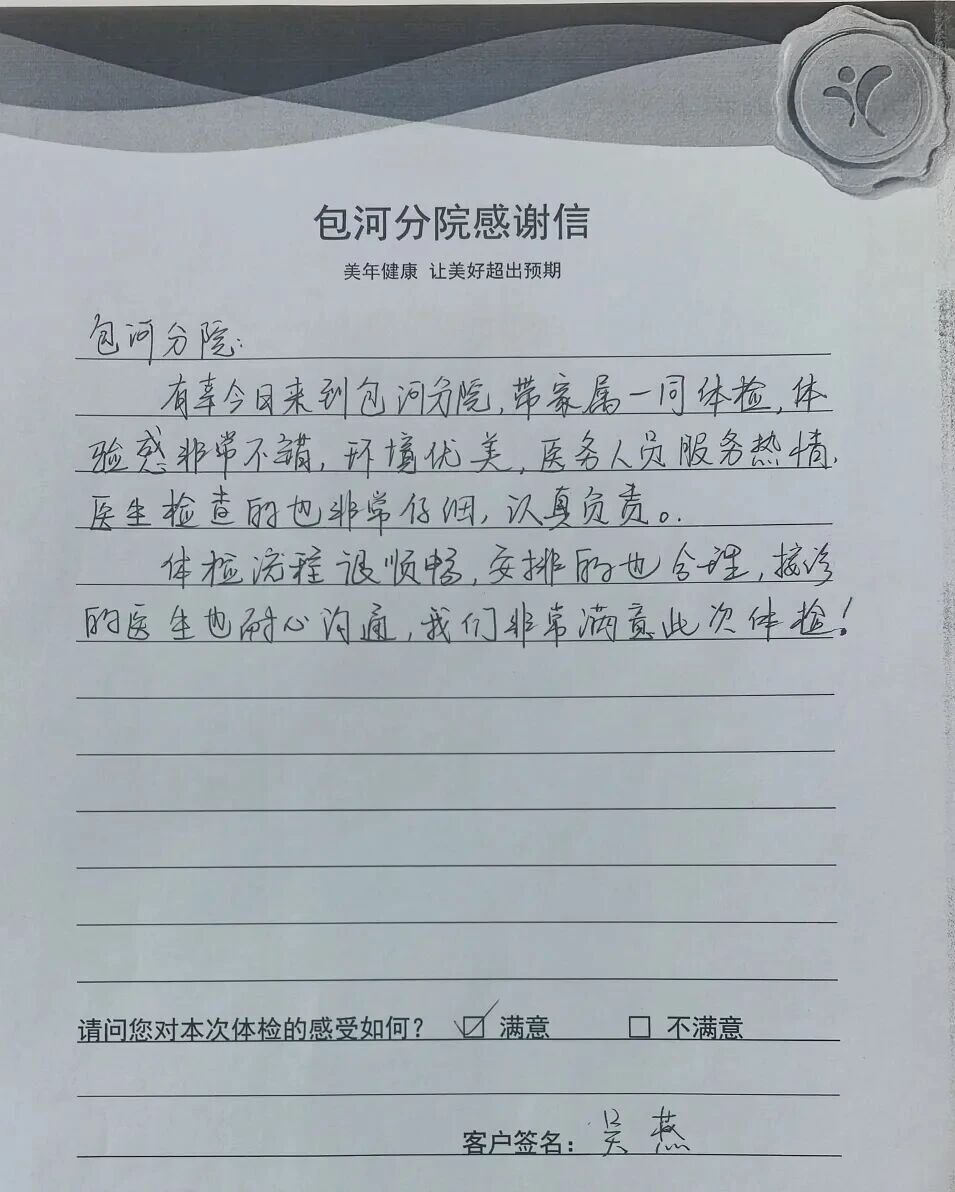 包河分院感谢信
美年健康 让美好超出预期
包河分院:
有幸今日来到包河分院,带家属一同体检,体
验感非常不错,环境优美,医务人员服务热情,
医生检查的也非常仔细,认真负责。
体检流程很顺畅,安排的也合理,接诊
的医生也耐心沟通,我们非常满意此次体检!
请问您对本次体检的感受如何? ☑ 满意 □ 不满意
客户签名: 吴燕